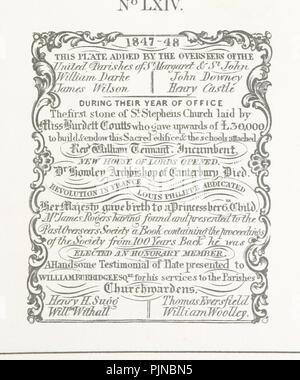 No LXIV.
1847-48
THIS PLATE ADDED BY THE OVERSEERS OF THE
United Parishes of St. Margaret & St. John
William Darke John Downey
James Wilson Henry Castle
DURING THEIR YEAR OF OFFICE
The first stone of St. Stephens Church laid by
Miss Burdett Coutts who gave upwards of £30,000
to build, & endow this Sacred edifice & the schools attached
Revd. William Tennant, Incumbent.
NEW HOUSE OF LORDS OPENED,
Dr. Howley Archbishop of Canterbury Died.
REVOLUTION IN FRANCE LOUIS PHILIPPE ABDICATED
Her Majesty gave birth to a Princess her 6th Child,
Mr. James Rogers having found and presented to the
Past Overseers Society a Book containing the proceedings
of the Society from 100 Years Back he was
ELECTED AN HONORARY MEMBER.
A Handsome Testimonial of Plate presented to
WILLIAM BURRIDGE ESQre. for his services to the Parishes
Churchwardens,
Henry H. Sugg Thomas Eversfield
Willm. Withall William Woolley.
alamy
PJNBN5
www.alamy.com